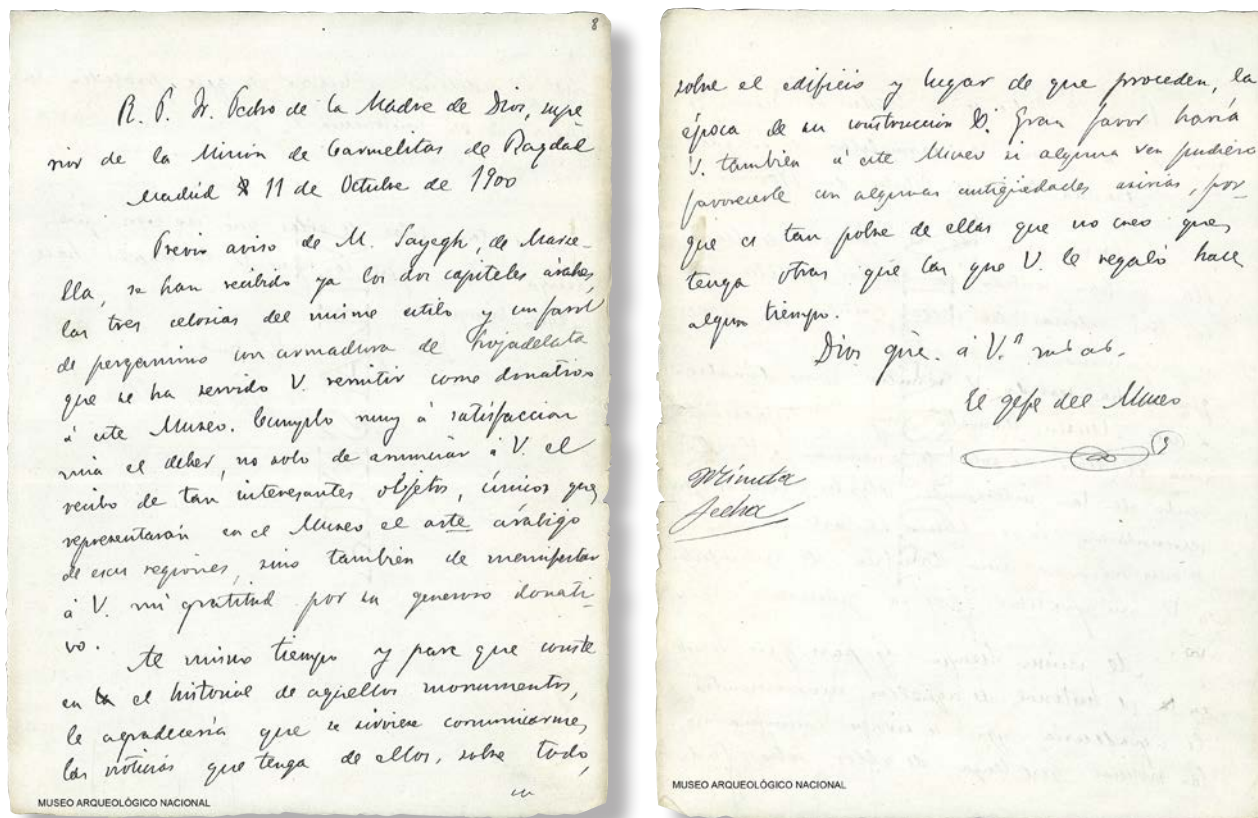 8
R. P. Fr. Pedro de la Madre de Dios, supe-
rior de la Mision de Carmelitas de Bagdad
Madrid 11 de Octubre de 1900
Previo aviso de M. Sayegh, de Marse-
lla, se han recibido ya los dos capiteles árabes,
las tres celosias del mismo estilo y un farol
de pergamino con armadura de hojadelata
que se ha servido V. remitir como donativo
á este Museo. Cumplo muy á satisfaccion
mia el deber, no solo de anunciar á V. el
recibo de tan interesantes objetos, únicos que
representarán en el Museo el arte arábigo
de esas regiones, sino tambien de manifestar
á V. mi gratitud por su generoso donati-
vo.
Al mismo tiempo y para que conste
en el historial de aquellos monumentos,
le agradeceria que se sirviese comunicarme
las noticias que tenga de ellos, sobre todo,
MUSEO ARQUEOLÓGICO NACIONAL
sobre el edificio y lugar de que proceden, la
época de su construccion &. Gran favor haria
V. tambien á este Museo si alguna vez pudiera
favorecerle con algunas antigüedades asirias, por-
que es tan pobre de ellas que no creo que
tenga otras que las que V. le regaló hace
algun tiempo.
Dios gũe. á V.ª
El gefe del Museo
Minuta
fecha
MUSEO ARQUEOLÓGICO NACIONAL